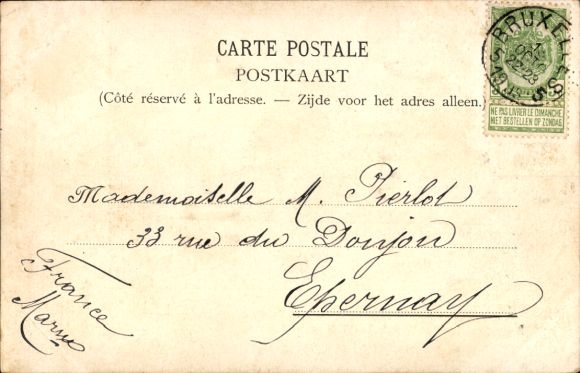 CARTE POSTALE
POSTKAART
(Côté réservé à l'adresse. — Zijde voor het adres alleen.)
BRUXELLES
NE PAS LIVRER LE DIMANCHE
NIET BESTELLEN OP ZONDAG
Mademoiselle M. Pierlot
33 rue du Donjon
Epernay
France
Marne